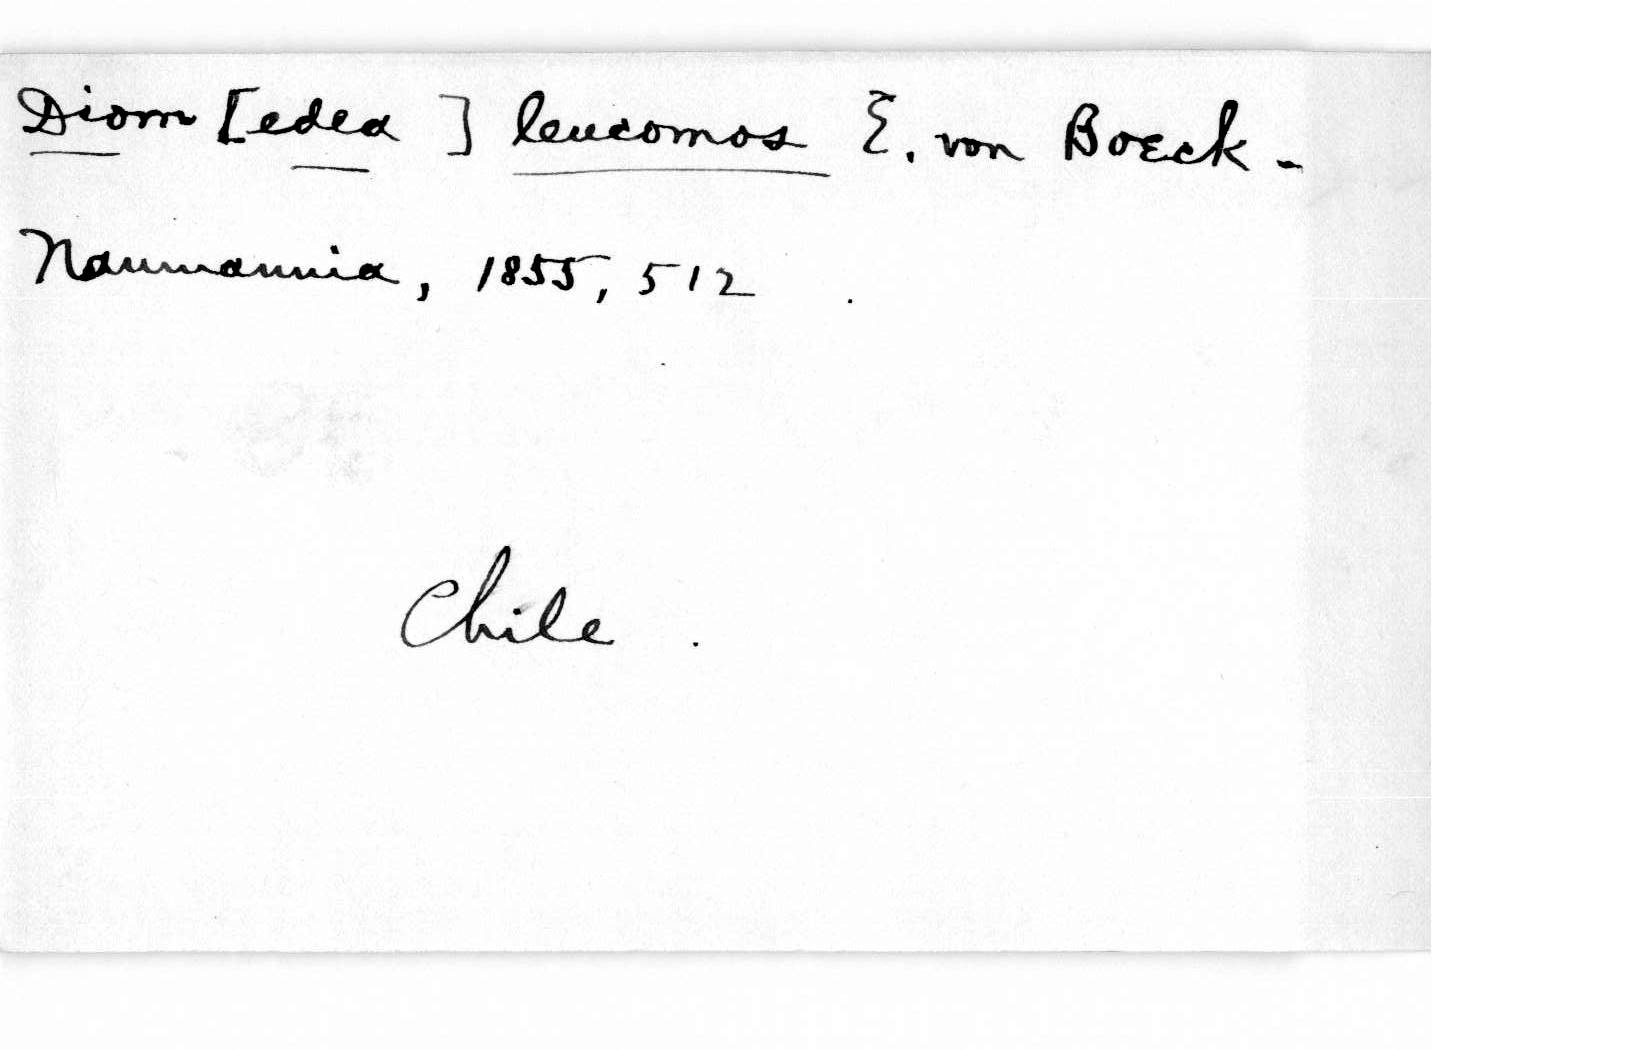 Diom [edea ] leucomos E. von Boeck -
Naumannia, 1855, 512 .
Chile .